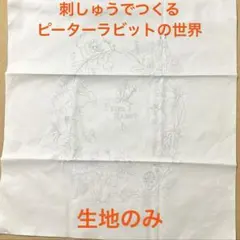 刺しゅうでつくる
ピーターラビットの世界
生地のみ